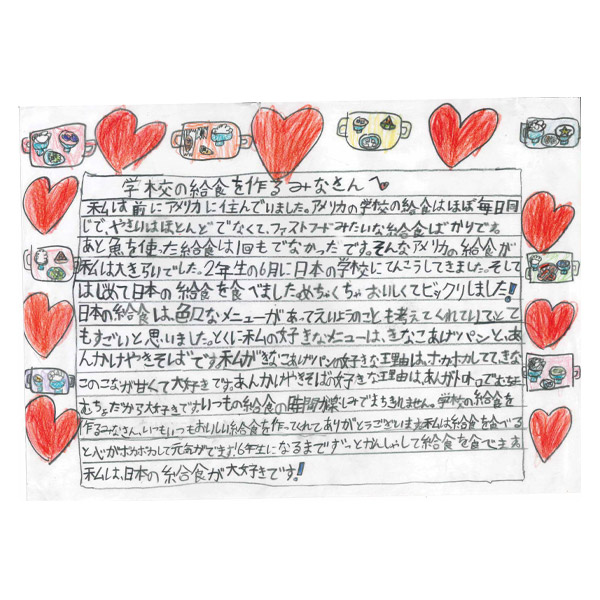 学校の給食を作るみなさんへ
私は前にアメリカに住んでいました。アメリカの学校の給食はほぼ毎日同
じで、やさいはほとんどでなくて、ファストフードみたいな給食ばかりです。
あと魚を使った給食は1回もでなかったです。そんなアメリカの給食が
私は大きらいでした。2年生の6月に日本の学校にてんこうしてきました。そして
はじめて日本の給食を食べました。めちゃくちゃおいしくてビックリしました!
日本の給食は、色々なメニューがあってえいようのことも考えてくれていてとて
もすごいと思いました。とくに私の好きなメニューは、きなこあげパンと、あ
んかけやきそばです。私がきなこあげパンの好きな理由は、ホカホカしてて、きな
このこなが甘くて大好きです。あんかけやきそばの好きな理由は、あんがトロトロでもちも
ちだから大好きです。いつもの給食の時間が楽しみでまちきれません。学校の給食を
作るみなさん、いつもいつもおいしい給食を作ってくれてありがとうございます。私は給食を食べる
と心がぽかぽかして元気がでます。6年生になるまでずっとかんしゃして給食を食べます
私は、日本の給食が大好きです!